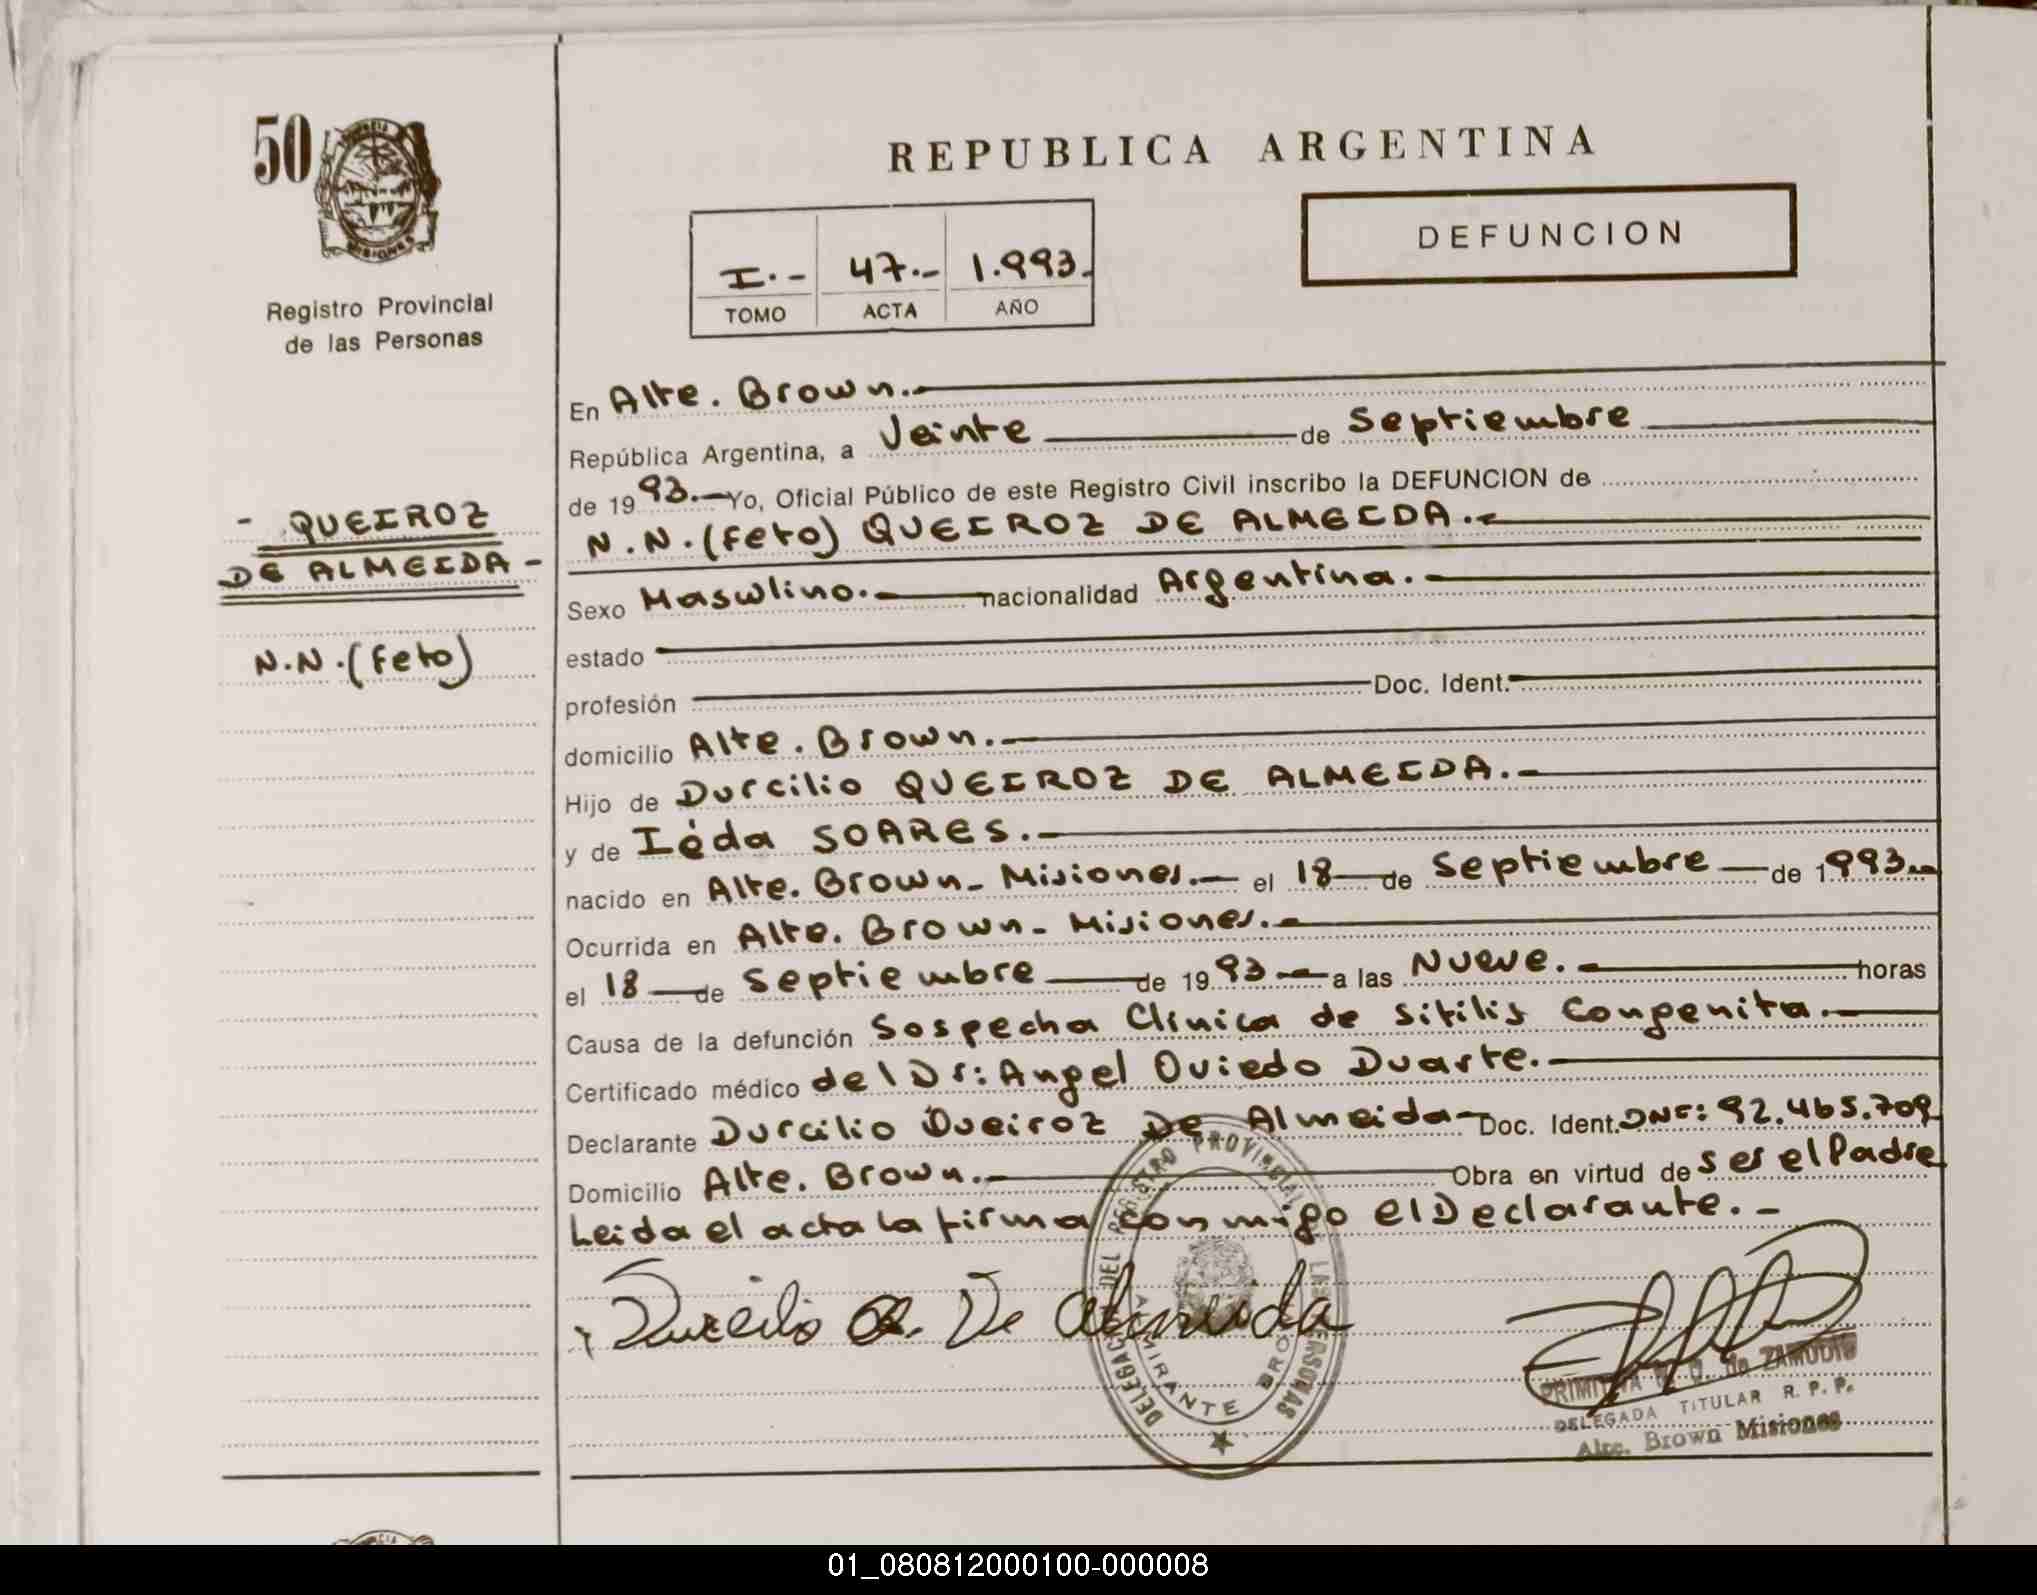 50
PROVINCIA
MISIONES
Registro Provincial
de las Personas
- QUEIROZ
DE ALMEIDA -
N.N.(Feto)
REPUBLICA ARGENTINA
DEFUNCION
I.- 47.- 1.993.
TOMO ACTA AÑO
En Alte. Brown.
República Argentina, a Veinte de Septiembre
de 19 93.- Yo, Oficial Público de este Registro Civil inscribo la DEFUNCION de
N.N.(Feto) QUEIROZ DE ALMEIDA.-
Sexo Masculino.- nacionalidad Argentina.-
estado
profesión Doc. Ident.
domicilio Alte. Brown.-
Hijo de Durcilio QUEIROZ DE ALMEIDA.-
y de Iéda SOARES.-
nacido en Alte. Brown- Misiones.- el 18 de Septiembre de 1.993.-
Ocurrida en Alte. Brown- Misiones.-
el 18 de Septiembre de 19 93 a las Nueve.- horas
Causa de la defunción Sospecha Clinica de Sifilis Congenita.-
Certificado médico del Dr: Angel Oviedo Duarte.-
Declarante Durcilio Queiroz De Almeida- Doc. Ident. DNI: 92.465.709
Domicilio Alte. Brown.- Obra en virtud de ser el Padre
Leida el acta la firma conmigo el Declarante.-
Durcilio Q. De Almeida
DELEGACION DEL REGISTRO PROVINCIAL DE LAS PERSONAS
ALMIRANTE BROWN
PRIMITIVA de ZAMUDIO
DELEGADA TITULAR R. P. P.
Alte. Brown Misiones
01_080812000100-000008